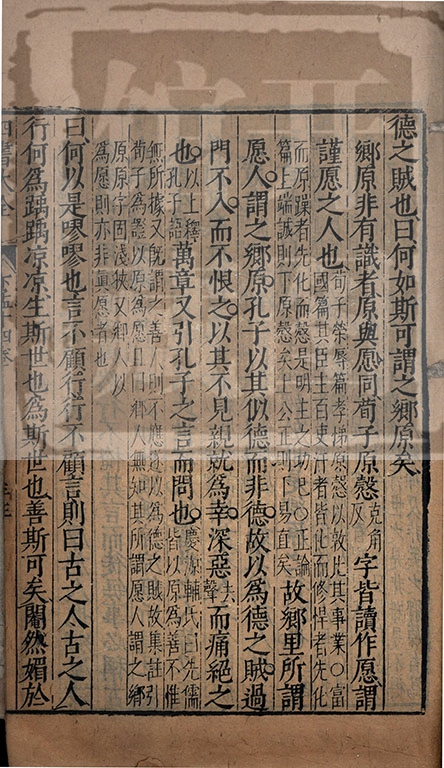 德之賊也曰何如斯可謂之鄉原矣
鄉原非有識者原與愿同荀子原愨克角反字皆讀作愿謂
謹愿之人也荀子榮辱篇孝悌原愨以敦比其事業○富
國篇其臣主百吏汙者皆化而修悍者先化
而原躁者先化而愨是明主之功已○正論
篇上端誠則下原愨矣上公正則下易直矣故鄉里所謂
愿人謂之鄉原孔子以其似德而非德故以為德之賊過
門不入而不恨之以其不見親就為幸深惡去聲而痛絕之
也以上釋孔子語萬章又引孔子之言而問也慶源輔氏曰先儒
皆以原為善不惟
無所據又既謂之善人則不應遂以為德之賊故集註引
荀子為證以原為愿且曰鄉人無知其所謂愿人謂之鄉
原原字固淺狹又鄉人以
為愿則亦非真愿者也
曰何以是嘐嘐也言不顧行行不顧言則曰古之人古之人
行何為踽踽凉凉生斯世也為斯世也善斯可矣閹然媚於
四書大全